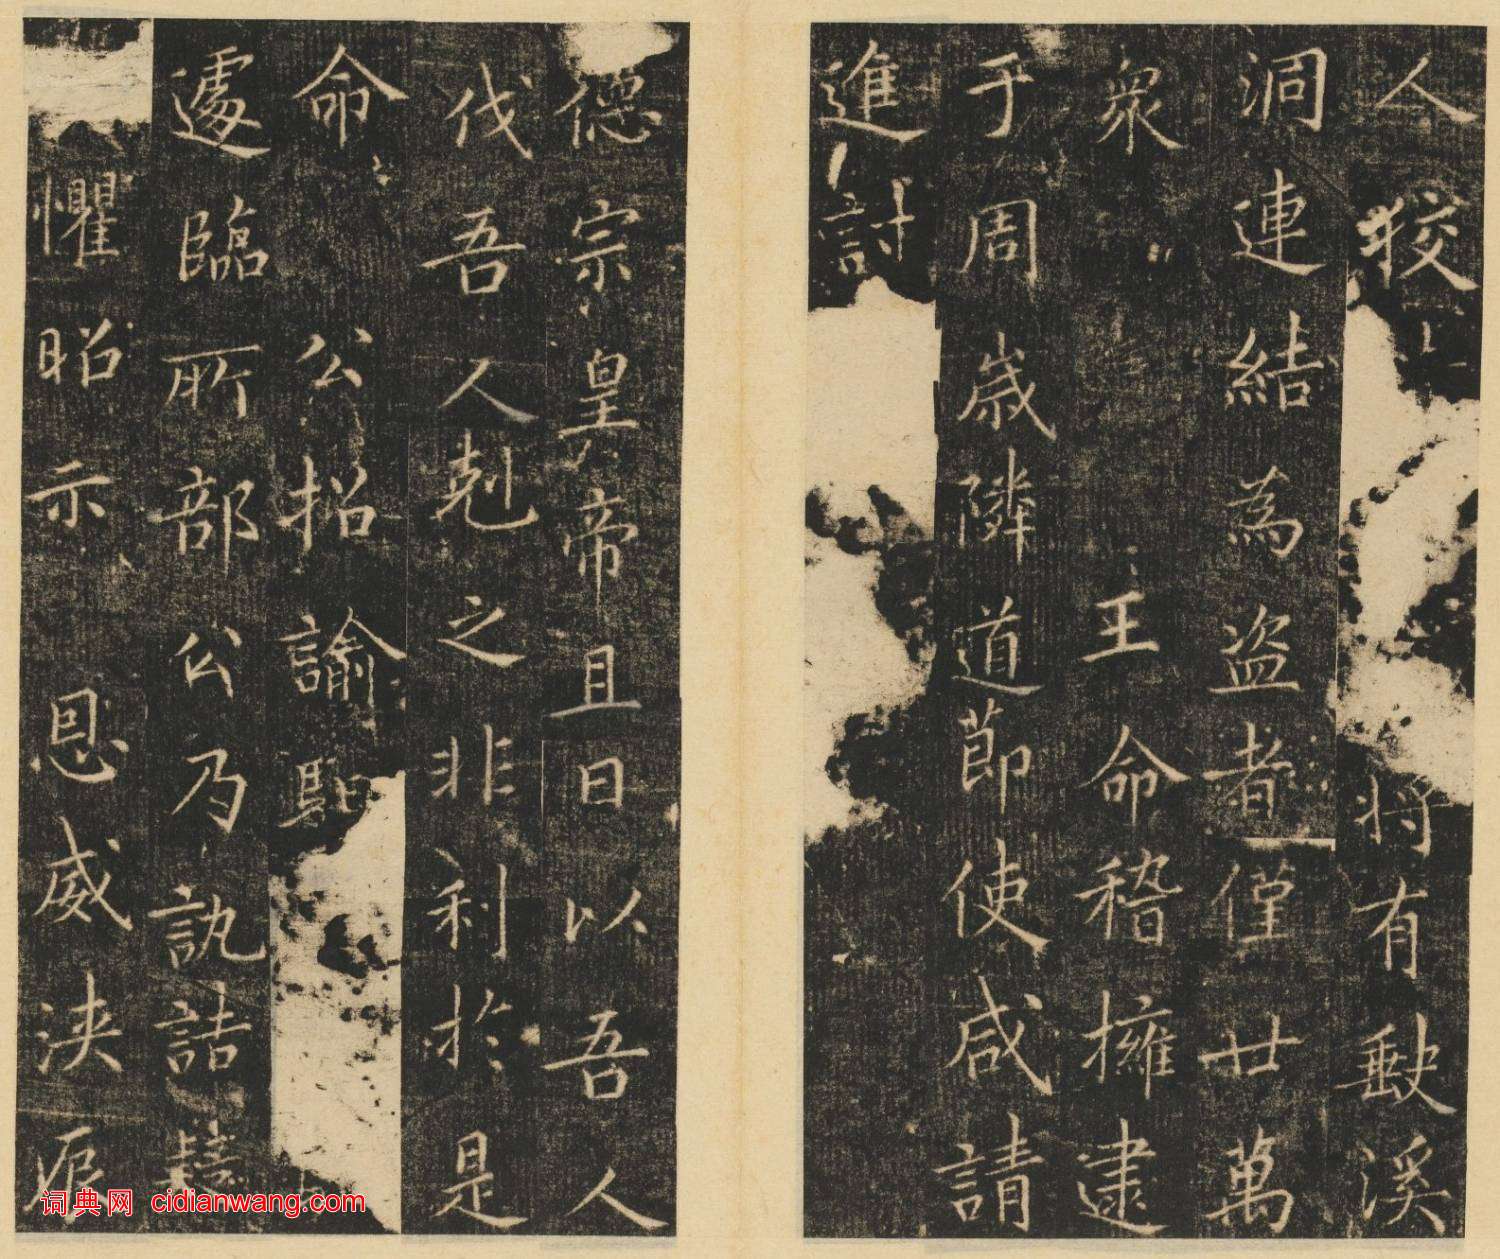 人狡
將有獣溪
洞連結為盗者僅廿萬
衆 王命稽擁逮
于周歳隣道節使咸請
進討
德宗皇帝且曰以吾人
伐吾人剋之非利於是
命 公招諭聖
遽臨所部公乃訊詰
懼昭示 恩威浹
词典网 cidianwang.com